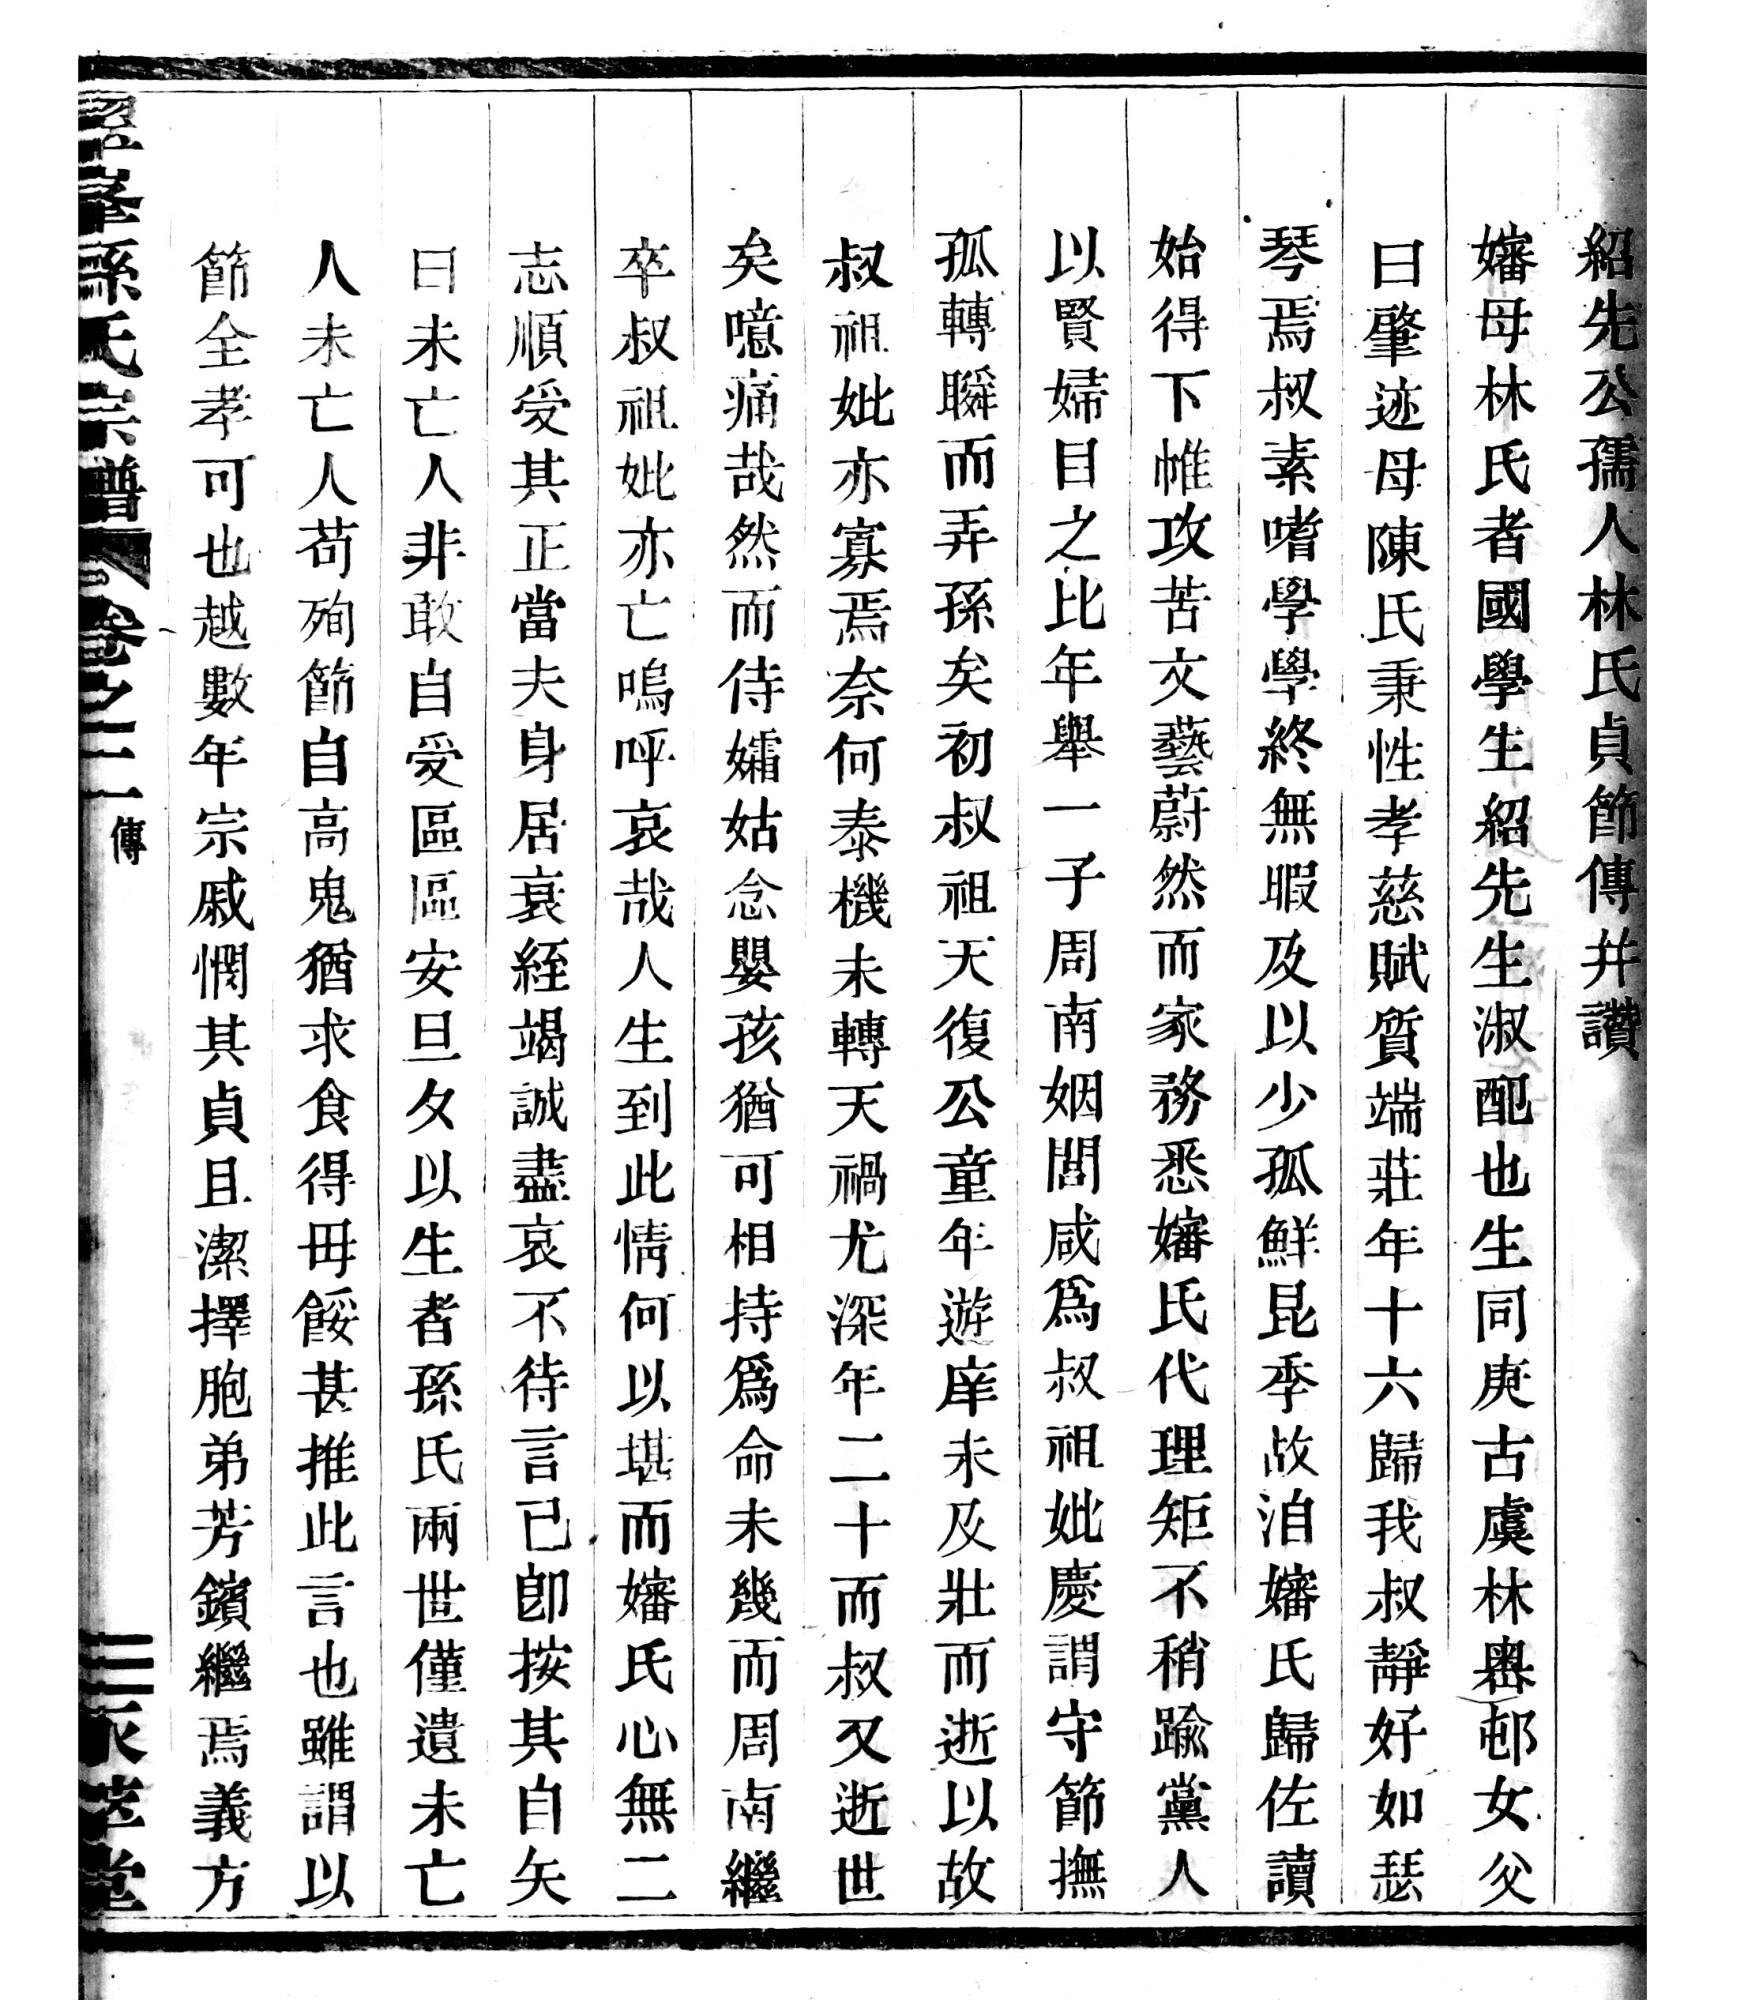 紹先公孺人林氏貞節傳并讚
嬸母林氏者國學生紹先先生淑配也生同庚古虞林嶴邨女父
曰肇迹母陳氏秉性孝慈賦質端莊年十六歸我叔靜好如瑟
琴焉叔素嗜學學終無暇及以少孤鮮昆季故洎嬸氏歸佐讀
始得下帷攻苦文藝蔚然而家務悉嬸氏代理矩不稍踰黨人
以賢婦目之比年舉一子周南姻閭咸爲叔祖妣慶謂守節撫
孤轉瞬而弄孫矣初叔祖天復公童年遊庠未及壯而逝以故
叔祖妣亦寡焉奈何泰機未轉天禍尤深年二十而叔又逝世
矣噫痛哉然而侍孀姑念嬰孩猶可相持爲命未幾而周南繼
卒叔祖妣亦亡嗚呼哀哉人生到此情何以堪而嬸氏心無二
志順受其正當夫身居衰絰竭誠盡哀不待言已卽按其自矢
曰未亡人非敢自受區區安旦夕以生者孫氏兩世僅遺未亡
人未亡人苟殉節自高鬼猶求食得毋餒甚推此言也雖謂以
節全孝可也越數年宗戚憫其貞且潔擇胞弟芳鑌繼焉義方
孫氏宗譜 卷之二 傳